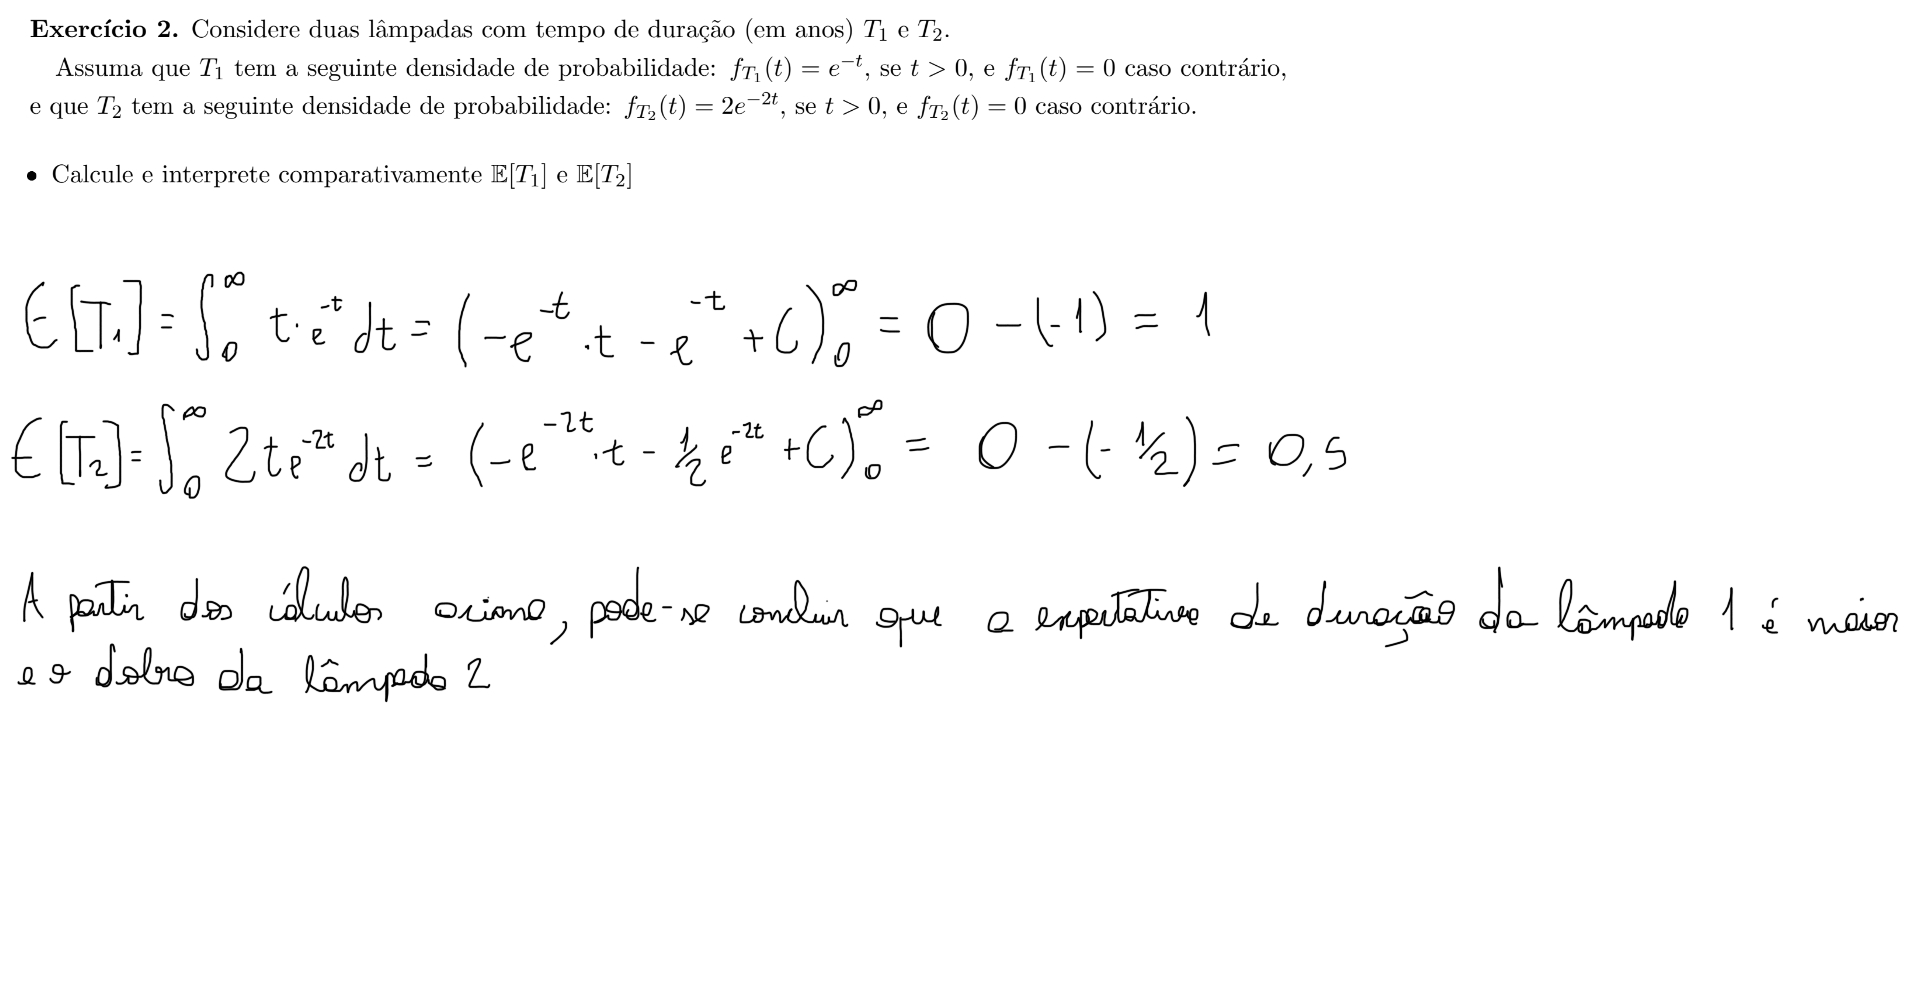 Exercício 2. Considere duas lâmpadas com tempo de duração (em anos) T₁ e T₂.
Assuma que T₁ tem a seguinte densidade de probabilidade: f_{T₁}(t) = e^{-t}, se t > 0, e f_{T₁}(t) = 0 caso contrário,
e que T₂ tem a seguinte densidade de probabilidade: f_{T₂}(t) = 2e^{-2t}, se t > 0, e f_{T₂}(t) = 0 caso contrário.
• Calcule e interprete comparativamente 𝔼[T₁] e 𝔼[T₂]
E[T₁] = ∫₀^∞ t·e^{-t} dt = (-e^{-t}·t - e^{-t} + C)₀^∞ = 0 - (-1) = 1
E[T₂] = ∫₀^∞ 2te^{-2t} dt = (-e^{-2t}·t - 1/2 e^{-2t} + C)₀^∞ = 0 - (-1/2) = 0,5
A partir dos cálculos acima, pode-se concluir que a expectativa de duração da lâmpada 1 é maior
e o dobro da lâmpada 2